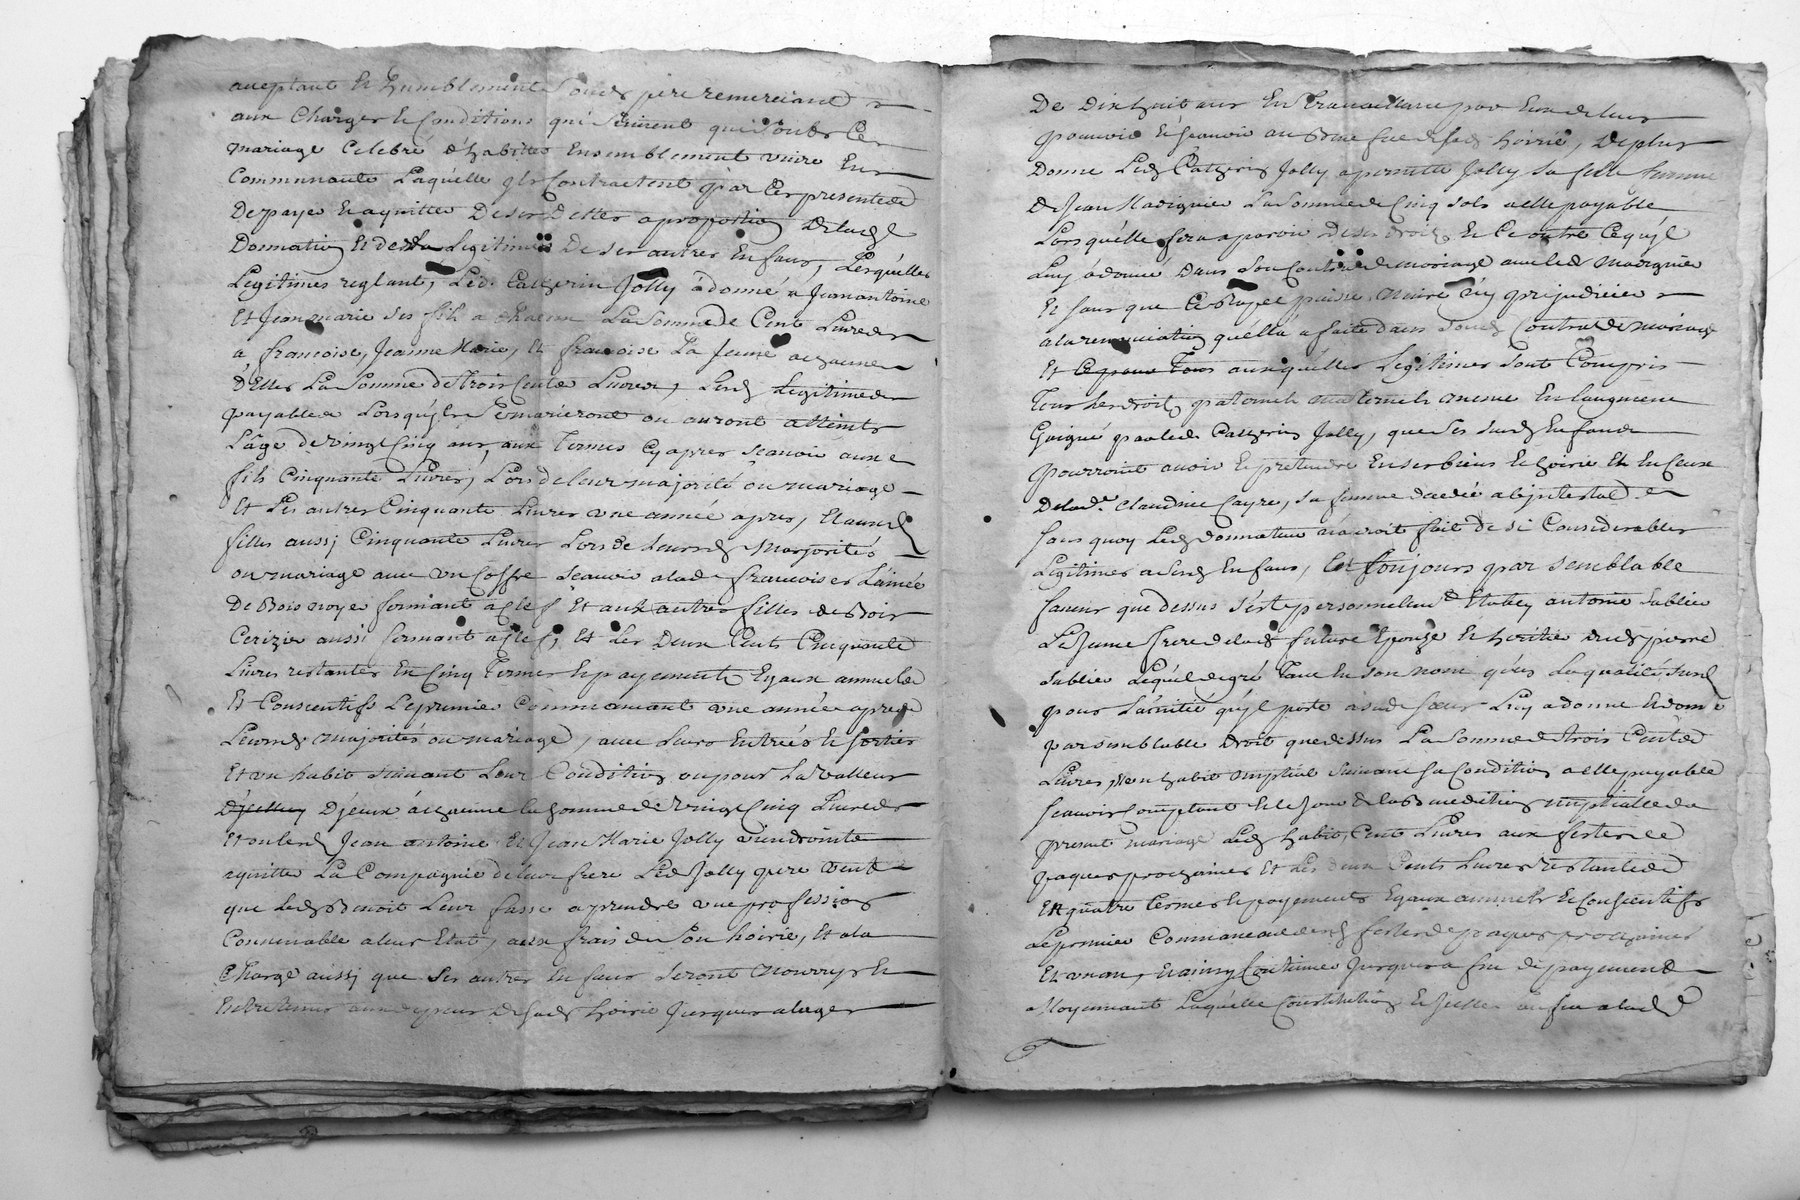 aceptant et humblement sond. pere remerciant
aux Charges et Conditions qui suivent qui sonts Ce
mariage Celebré d'habitter Ensemblement vivre En
Communauté Laquelle ils Contractent par Ces presentes
De payer et aquitter De ses Dettes a proportion De lad.
Donnation et des Legitimes De ses autres Enfans, Lesquelles
Legitimes reglant, Led. Catherin Jolly a donné a Jean antoine
Et Jean marie ses fils a chacun La Somme de Cent Livres
a francoise, Jeanne Marie, Et francoise La Jeune a chacune
d'Elles La Somme de trois Cents Livres, Lesd. Legitimes
payables Lorsqu'ils se marieront ou auront atteints
L'age de vingt Cinq ans, aux Termes Cy apres scavoir aux
fils Cinquante Livres, Lors de leur majorité ou mariage
Et Les autres Cinquante Livres une année apres, Et ausd.
filles aussi Cinquante Livres Lors de leursd. Marjorités
ou mariage avec un Coffre scavoir a lad. francoise L'ainée
De Bois noyer fermant a Clef Et aux autres filles de Bois
Cerizier aussi fermant a Clef, Et Les Deux Cents Cinquante
Livres restantes En Cinq Termes et payements Egaux annuels
Et Consecutifs Le premier Commancant une année apres
Leursd. majorités ou mariage, avec Leurs Entrées et sorties
Et un habit suivant Leur Condition ou pour La valleur
D'yceux a chacune la somme de vingt Cinq Livres
Et ou lesd. Jean antoine Et Jean Marie Jolly viendroint a
quitter La Compagnie de leur frere Led. Jolly pere veut
que Led. Benoit Leur fasse aprendre une profession
Convenable a leur Etat, aux frais de son hoirie, Et a la
Charge aussi que ses autres Enfans seront Nourrys et
Entretenus aux depens De sad. hoirie Jusques a l'age
De Dix huit ans En travaillant par Eux de leur
pouvoir et scavoir au profit de sad. hoirie, De plus
Donne Led. Catherin Jolly a pernette Jolly sa fille femme
de Jean Mavignier La Somme de Cinq sols a elle payable
Lorsqu'elle fera aparoir De ses droits et Ce outre Ce qu'il
Luy a donné Dans son Contrat de mariage avec led. Mavignier
Et sans que Ce puisse Nuire n'y prejudicier
a la renonciation qu'elle a faite dans sond. Contrat de mariage
Et auxquelles Legitimes sont Compris
Tous les droits paternels maternels mesme En l'augment
Gaigné par led. Catherin Jolly, que ses susd. Enfans
pourroint avoir et pretendre En ses biens et hoirie Et En Ceux
De lad. Claudine Cayre, sa femme decedé ab intestat
sans quoy Led. donnateur n'auroit fait de si Considerables
Legitimes a sesd. Enfans, Et toujours par semblable
faveur que dessus s'est personnelment Etably antoine Sublier
Le Jeune frere de lad. future Epouze et heritier dud. pierre
Sublier Lequel de gré Tant En son nom qu'en La qualité susd.
pour L'amitié qu'il porte a sad. sœur Luy a donné Et donne
par semblable Droit que dessus La Somme de trois Cents
Livres, Et un habit nuptial suivant sa Condition a elle payable
Scavoir Comptant et le Jour de la Benediction nuptialle du
present mariage Led. habit, Cent Livres aux festes de
paques prochaines Et Les deux Cents Livres restantes
En quatre termes et payements Egaux annuels et Consecutifs
Le premier Commancant desd. festes de paques prochaines
Et un an, Et ainsy Continuer Jusques a fin de payement
Moyennant Laquelle Constitution